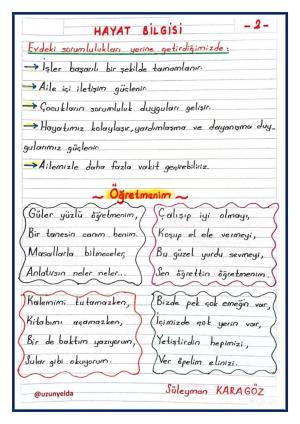 HAYAT BİLGİSİ
-2-
Evdeki sorumlulukları yerine getirdiğimizde:
→ İşler başarılı bir şekilde tamamlanır.
→ Aile içi iletişim güçlenir.
→ Çocukların sorumluluk duyguları gelişir.
→ Hayatımız kolaylaşır, yardımlaşma ve dayanışma duy-
gularımız güçlenir.
→ Ailemizle daha fazla vakit geçirebiliriz.
~ Öğretmenim ~
Güler yüzlü öğretmenim,
Bir tanesin canım benim.
Masallarla bilmeceler,
Anlatırsın neler neler...
Çalışıp iyi olmayı,
Koşup el ele vermeyi,
Bu güzel yurdu sevmeyi,
Sen öğrettin öğretmenim.
Kalemimi tutamazken,
Kitabımı açamazken,
Bir de baktım yazıyorum,
Sular gibi okuyorum.
Bizde pek çok emeğin var,
İçimizde çok yerin var,
Yetiştirdin hepimizi,
Ver öpelim elinizi.
Süleyman KARAGÖZ
@uzunyelda